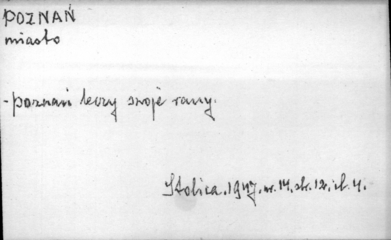 POZNAŃ
miasto
- poznań leczy swoje rany.
Stolica. 1947. nr. 14. str. 12. il. 4.